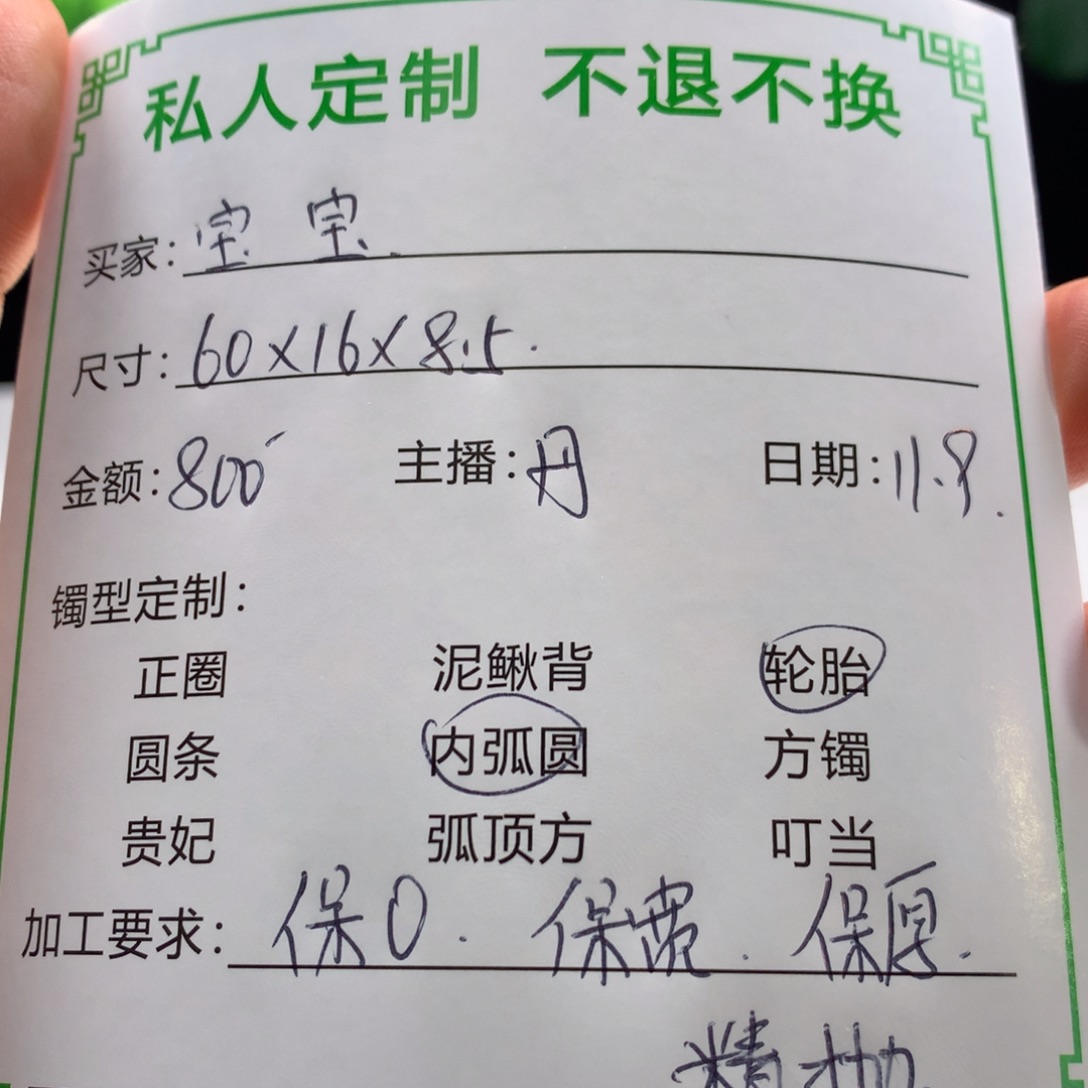 私人定制 不退不换
买家：宝宝.
尺寸：60×16×8.5.
金额：800 主播：丹 日期：11.9.
镯型定制：
正圈 泥鳅背 轮胎
圆条 内弧圆 方镯
贵妃 弧顶方 叮当
加工要求：保0. 保宽. 保厚.
精抛